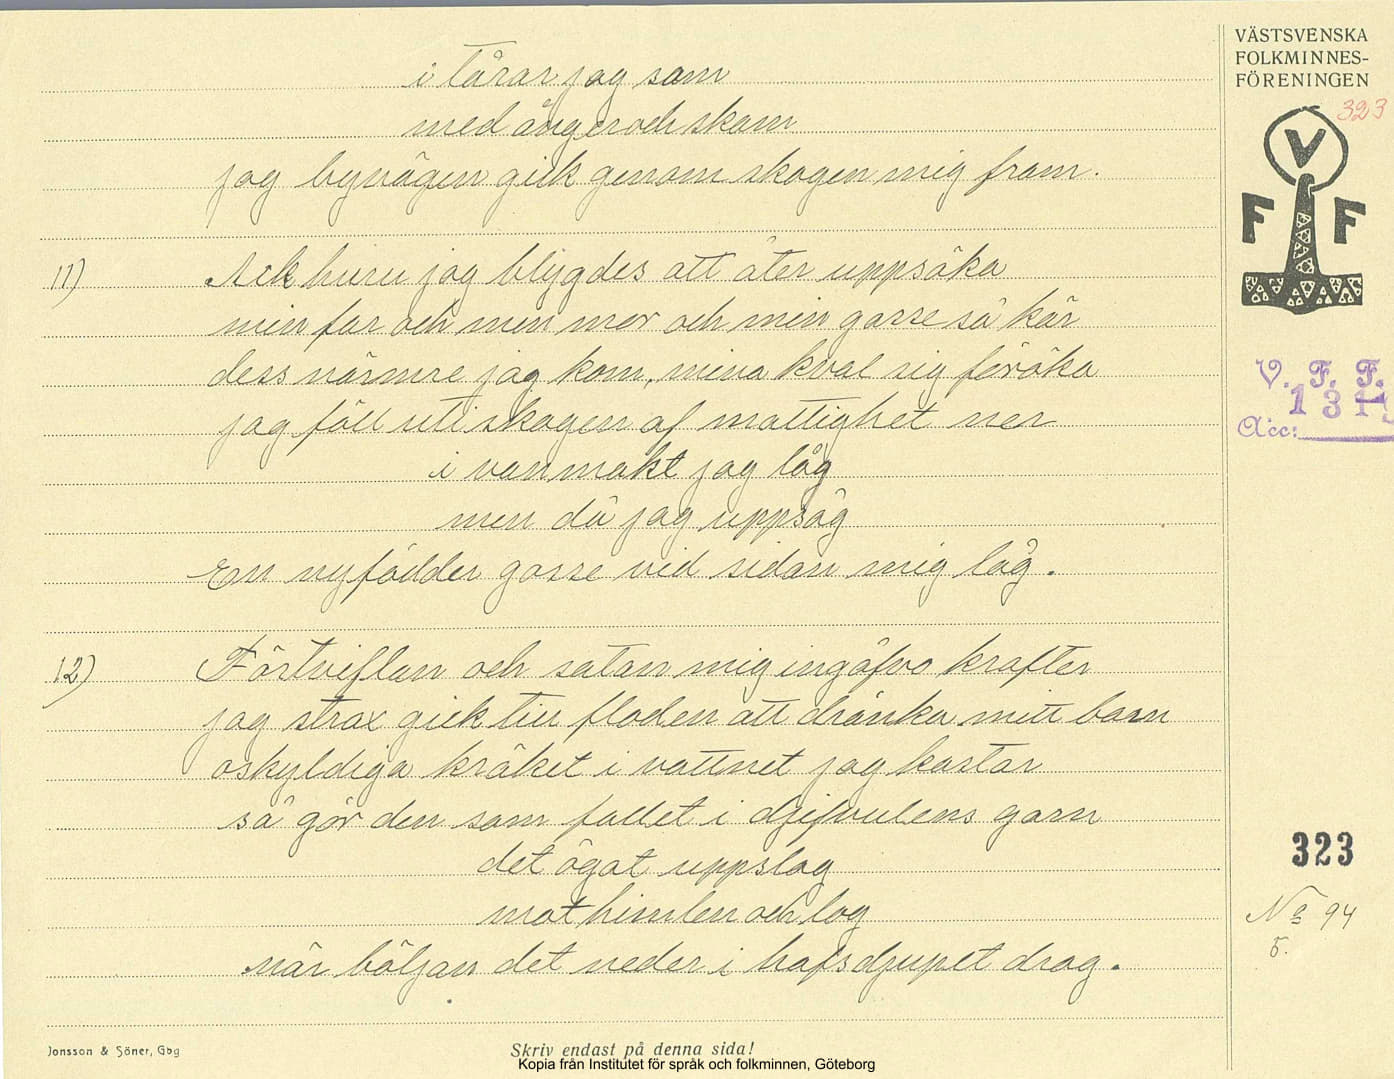 i tårar jag sam
med ånger och skam
jag byvägen gick genom skogen mig fram.
11) Ack huru jag blygdes att åter uppsöka
min far och min mor och min gosse så kär
dess närmre jag kom, mina kval sig föröka
jag föll uti skogen af mattighet ner
i vanmakt jag låg
men då jag uppsåg
En nyfödder gosse vid sidan mig låg.
12) Förtviflan och satan mig ingåfvo krafter
jag strax gick till floden att dränka mitt barn
oskyldiga kräket i vattnet jag kastar
så gör den som fallet i djefvulens garn
det ögat uppslog
mot himlen och log
när böljan det neder i hafsdjupet drog.
VÄSTSVENSKA
FOLKMINNES-
FÖRENINGEN
323
V
F F
V. F. F.
131
Acc:
323
No 94
5.
Jonsson & Söner, Gbg
Skriv endast på denna sida!
Kopia från Institutet för språk och folkminnen, Göteborg